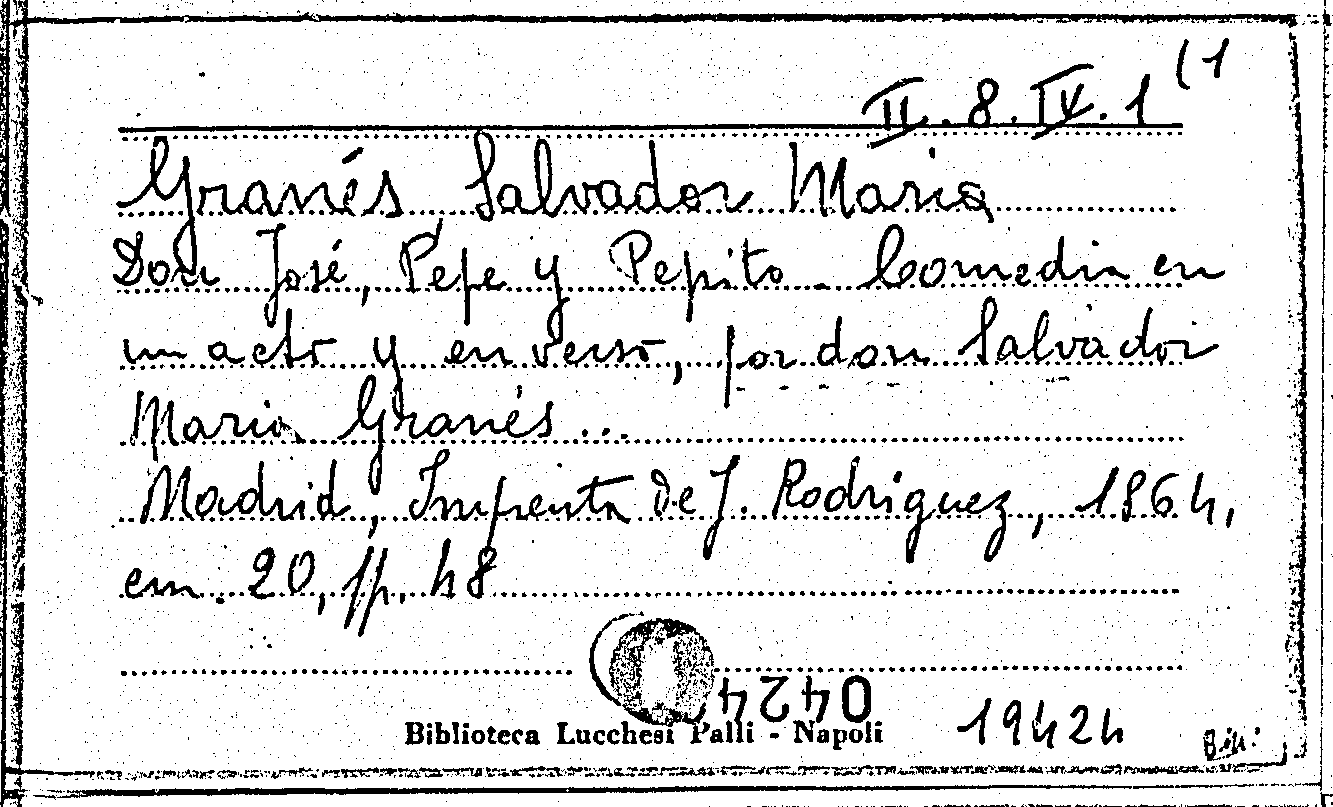 II. 8. IV. 1 (1
Granés Salvador Maria
Don José, Pepe y Pepito. Comedia en
un acto y en verso, por don Salvador
Maria Granés...
Madrid, Imprenta de J. Rodriguez, 1864,
cm. 20, pp. 48
0424
Biblioteca Lucchesi Palli - Napoli
19424